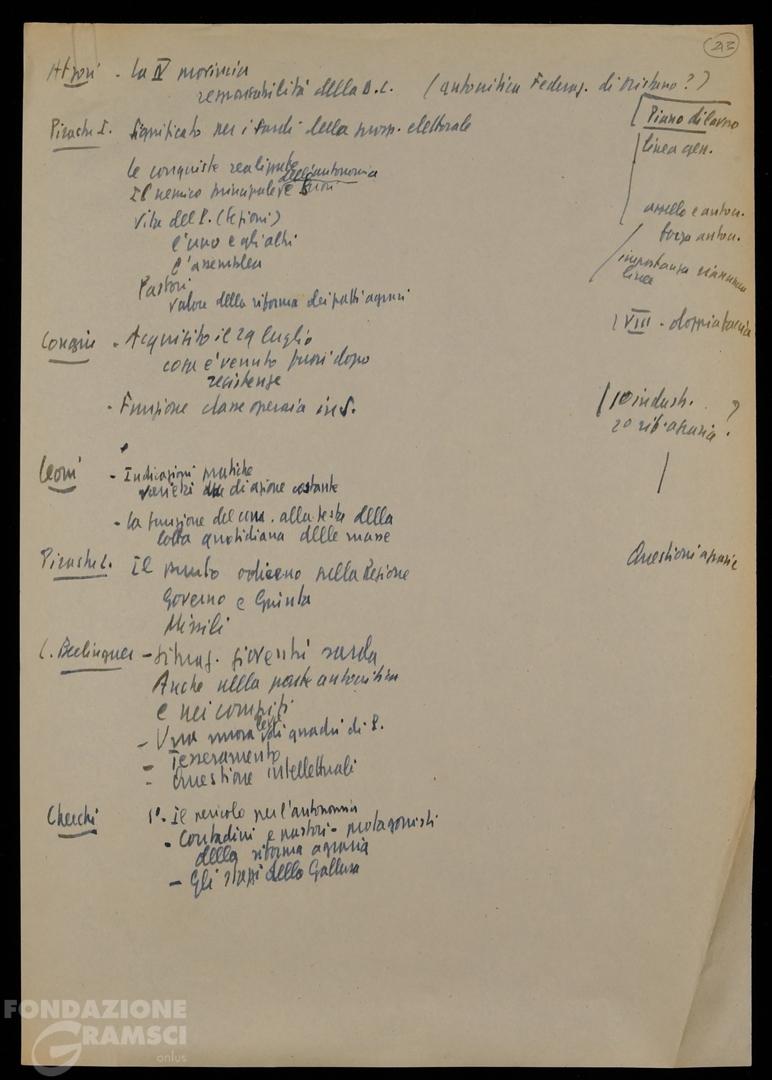 23
Atzori - La IV provincia
responsabilità della D.C. (autocritica Federaz. di Oristano?)
Pirastu I. Significato per i sardi della prosp. elettorale
Piano di lavoro
linea gen.
Le conquiste realizzate
dell'autonomia
Il nemico principale è fuori
Vita del P. (Sezioni)
L'uno e gli altri
L'assemblea
Pastori
valore della riforma dei patti agrari
appello e auton.
forze auton.
importanza
linea
Congiu - Acquisito il 29 luglio
cosa è venuto fuori dopo
resistenze
- Funzione classe operaia in S.
VIII - doppia faccia
10 industr.
20 rif. agraria ?
Leoni - Indicazioni pratiche
di azione costante
- La funzione del com. alla testa della
lotta quotidiana delle masse
Pirastu L. Il punto odierno nella Regione
Governo e Giunta
Missili
Questioni agrarie
L. Berlinguer - Situaz. gioventù sarda
Anche nella parte autocritica
e nei compiti
- Una nuova leva di quadri di P.
- Tesseramento
- Questione intellettuali
Cherchi 1°- Il pericolo per l'autonomia
- Contadini e pastori - protagonisti
della riforma agraria
- Gli stazzi della Gallura
FONDAZIONE
GRAMSCI
onlus